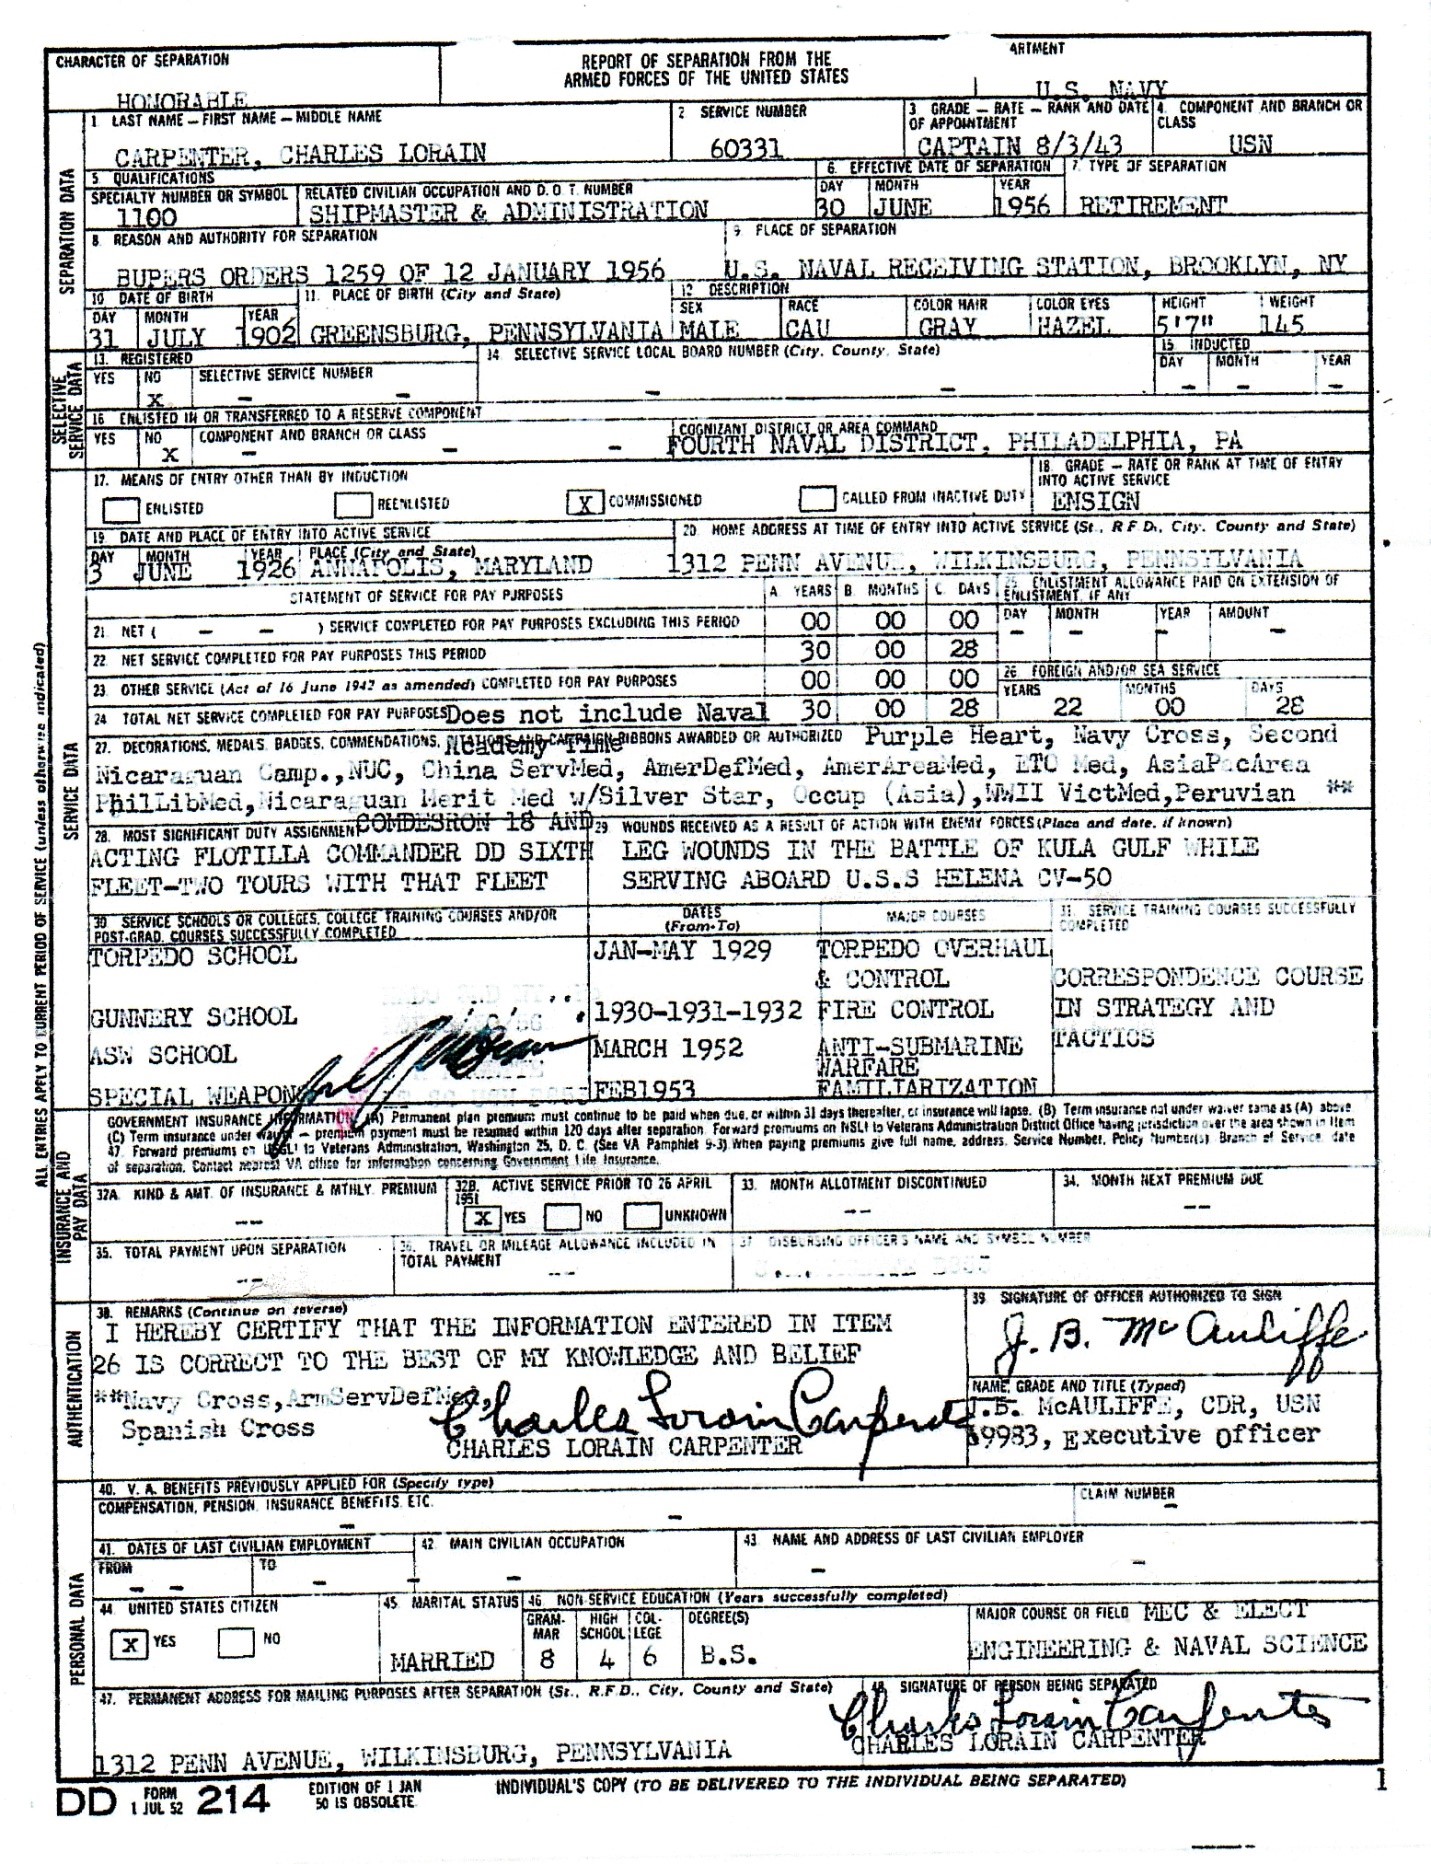 CHARACTER OF SEPARATION
HONORABLE
REPORT OF SEPARATION FROM THE
ARMED FORCES OF THE UNITED STATES
ARTMENT
U.S. NAVY
1 LAST NAME — FIRST NAME — MIDDLE NAME
CARPENTER, CHARLES LORAIN
2 SERVICE NUMBER
60331
3 GRADE — RATE — RANK AND DATE
OF APPOINTMENT
CAPTAIN 8/3/43
4. COMPONENT AND BRANCH OR
CLASS
USN
SEPARATION DATA
5 QUALIFICATIONS
SPECIALTY NUMBER OR SYMBOL
1100
RELATED CIVILIAN OCCUPATION AND D. O. T. NUMBER
SHIPMASTER & ADMINISTRATION
6. EFFECTIVE DATE OF SEPARATION
DAY MONTH YEAR
30 JUNE 1956
7. TYPE OF SEPARATION
RETIREMENT
8 REASON AND AUTHORITY FOR SEPARATION
BUPERS ORDERS 1259 OF 12 JANUARY 1956
9 PLACE OF SEPARATION
U.S. NAVAL RECEIVING STATION, BROOKLYN, NY
10 DATE OF BIRTH
DAY MONTH YEAR
31 JULY 1902
11. PLACE OF BIRTH (City and State)
GREENSBURG, PENNSYLVANIA
12 DESCRIPTION
SEX RACE COLOR HAIR COLOR EYES HEIGHT WEIGHT
MALE CAU GRAY HAZEL 5'7" 145
SELECTIVE
SERVICE DATA
13. REGISTERED
YES NO SELECTIVE SERVICE NUMBER
X - -
14 SELECTIVE SERVICE LOCAL BOARD NUMBER (City, County, State)
- -
15 INDUCTED
DAY MONTH YEAR
- - -
16 ENLISTED IN OR TRANSFERRED TO A RESERVE COMPONENT
YES NO COMPONENT AND BRANCH OR CLASS
X - - -
COGNIZANT DISTRICT OR AREA COMMAND
FOURTH NAVAL DISTRICT, PHILADELPHIA, PA
17. MEANS OF ENTRY OTHER THAN BY INDUCTION
ENLISTED REENLISTED X COMMISSIONED CALLED FROM INACTIVE DUTY
18 GRADE — RATE OR RANK AT TIME OF ENTRY
INTO ACTIVE SERVICE
ENSIGN
19 DATE AND PLACE OF ENTRY INTO ACTIVE SERVICE
DAY MONTH YEAR PLACE (City and State)
3 JUNE 1926 ANNAPOLIS, MARYLAND
20. HOME ADDRESS AT TIME OF ENTRY INTO ACTIVE SERVICE (St., R.F.D., City, County and State)
1312 PENN AVENUE, WILKINSBURG, PENNSILVANIA
STATEMENT OF SERVICE FOR PAY PURPOSES
A. YEARS B. MONTHS C. DAYS
25. ENLISTMENT ALLOWANCE PAID ON EXTENSION OF
ENLISTMENT, IF ANY
DAY MONTH YEAR AMOUNT
- - - -
21. NET ( — — ) SERVICE COMPLETED FOR PAY PURPOSES EXCLUDING THIS PERIOD
00 00 00
22. NET SERVICE COMPLETED FOR PAY PURPOSES THIS PERIOD
30 00 28
23. OTHER SERVICE (Act of 16 June 1942 as amended) COMPLETED FOR PAY PURPOSES
00 00 00
26 FOREIGN AND/OR SEA SERVICE
YEARS MONTHS DAYS
22 00 28
24 TOTAL NET SERVICE COMPLETED FOR PAY PURPOSES Does not include Naval
Academy Time
30 00 28
ALL ENTRIES APPLY TO CURRENT PERIOD OF SERVICE (unless otherwise indicated)
SERVICE DATA
27. DECORATIONS, MEDALS, BADGES, COMMENDATIONS, CITATIONS AND CAMPAIGN RIBBONS AWARDED OR AUTHORIZED Purple Heart, Navy Cross, Second
Nicaraguan Camp.,NUC, China ServMed, AmerDefMed, AmerAreaMed, ETO Med, AsiaPacArea
PhilLibMed,Nicaraguan Merit Med w/Silver Star, Occup (Asia),WWII VictMed,Peruvian **
28. MOST SIGNIFICANT DUTY ASSIGNMENT COMDESRON 18 AND
ACTING FLOTILLA COMMANDER DD SIXTH
FLEET-TWO TOURS WITH THAT FLEET
29 WOUNDS RECEIVED AS A RESULT OF ACTION WITH ENEMY FORCES (Place and date, if known)
LEG WOUNDS IN THE BATTLE OF KULA GULF WHILE
SERVING ABOARD U.S.S HELENA CV-50
30 SERVICE SCHOOLS OR COLLEGES, COLLEGE TRAINING COURSES AND/OR
POST-GRAD. COURSES SUCCESSFULLY COMPLETED
DATES
(From-To)
MAJOR COURSES
31. SERVICE TRAINING COURSES SUCCESSFULLY
COMPLETED
TORPEDO SCHOOL JAN-MAY 1929 TORPEDO OVERHAUL
& CONTROL
GUNNERY SCHOOL 1930-1931-1932 FIRE CONTROL
ASW SCHOOL MARCH 1952 ANTI-SUBMARINE
WARFARE
SPECIAL WEAPONS FEB1953 FAMILIARIZATION
CORRESPONDENCE COURSE
IN STRATEGY AND
TACTICS
INSURANCE AND
PAY DATA
GOVERNMENT INSURANCE INFORMATION (A) Permanent plan premium must continue to be paid when due, or within 31 days thereafter, or insurance will lapse. (B) Term insurance not under waiver same as (A) above.
(C) Term insurance under waiver — premium payment must be resumed within 120 days after separation. Forward premiums on NSLI to Veterans Administration District Office having jurisdiction over the area shown in Item
47. Forward premiums on USGLI to Veterans Administration, Washington 25, D. C. (See VA Pamphlet 9-3) When paying premiums give full name, address, Service Number, Policy Number(s) Branch of Service, date
of separation. Contact nearest VA office for information concerning Government Life Insurance.
32A. KIND & AMT. OF INSURANCE & MTHLY. PREMIUM
--
32B. ACTIVE SERVICE PRIOR TO 26 APRIL
1951
X YES NO UNKNOWN
33. MONTH ALLOTMENT DISCONTINUED
--
34. MONTH NEXT PREMIUM DUE
--
35. TOTAL PAYMENT UPON SEPARATION
--
36. TRAVEL OR MILEAGE ALLOWANCE INCLUDED IN
TOTAL PAYMENT
--
37 DISBURSING OFFICER'S NAME AND SYMBOL NUMBER
AUTHENTICATION
38. REMARKS (Continue on reverse)
I HEREBY CERTIFY THAT THE INFORMATION ENTERED IN ITEM
26 IS CORRECT TO THE BEST OF MY KNOWLEDGE AND BELIEF
**Navy Cross,ArmServDefMed,
Spanish Cross
Charles Lorain Carpenter
CHARLES LORAIN CARPENTER
39 SIGNATURE OF OFFICER AUTHORIZED TO SIGN
J. B. McAuliffe
NAME, GRADE AND TITLE (Typed)
J.B. McAULIFFE, CDR, USN
9983, Executive Officer
PERSONAL DATA
40. V. A. BENEFITS PREVIOUSLY APPLIED FOR (Specify type)
COMPENSATION, PENSION, INSURANCE BENEFITS, ETC.
- -
CLAIM NUMBER
-
41. DATES OF LAST CIVILIAN EMPLOYMENT
FROM TO
- - -
42. MAIN CIVILIAN OCCUPATION
- -
43 NAME AND ADDRESS OF LAST CIVILIAN EMPLOYER
- -
44 UNITED STATES CITIZEN
X YES NO
45. MARITAL STATUS
MARRIED
46. NON-SERVICE EDUCATION (Years successfully completed)
GRAM-
MAR
8
HIGH
SCHOOL
4
COL-
LEGE
6
DEGREE(S)
B.S.
MAJOR COURSE OR FIELD MEC & ELECT
ENGINEERING & NAVAL SCIENCE
47. PERMANENT ADDRESS FOR MAILING PURPOSES AFTER SEPARATION (St., R.F.D., City, County and State)
1312 PENN AVENUE, WILKINSBURG, PENNSYLVANIA
48 SIGNATURE OF PERSON BEING SEPARATED
Charles Lorain Carpenter
CHARLES LORAIN CARPENTER
DD FORM 1 JUL 52 214
EDITION OF 1 JAN
50 IS OBSOLETE
INDIVIDUAL'S COPY (TO BE DELIVERED TO THE INDIVIDUAL BEING SEPARATED)
1